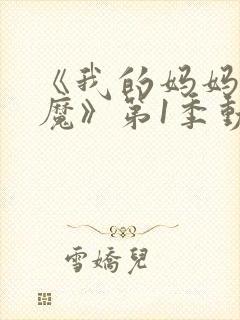 《我的妈妈
魔》第1季動
雪嬌兒